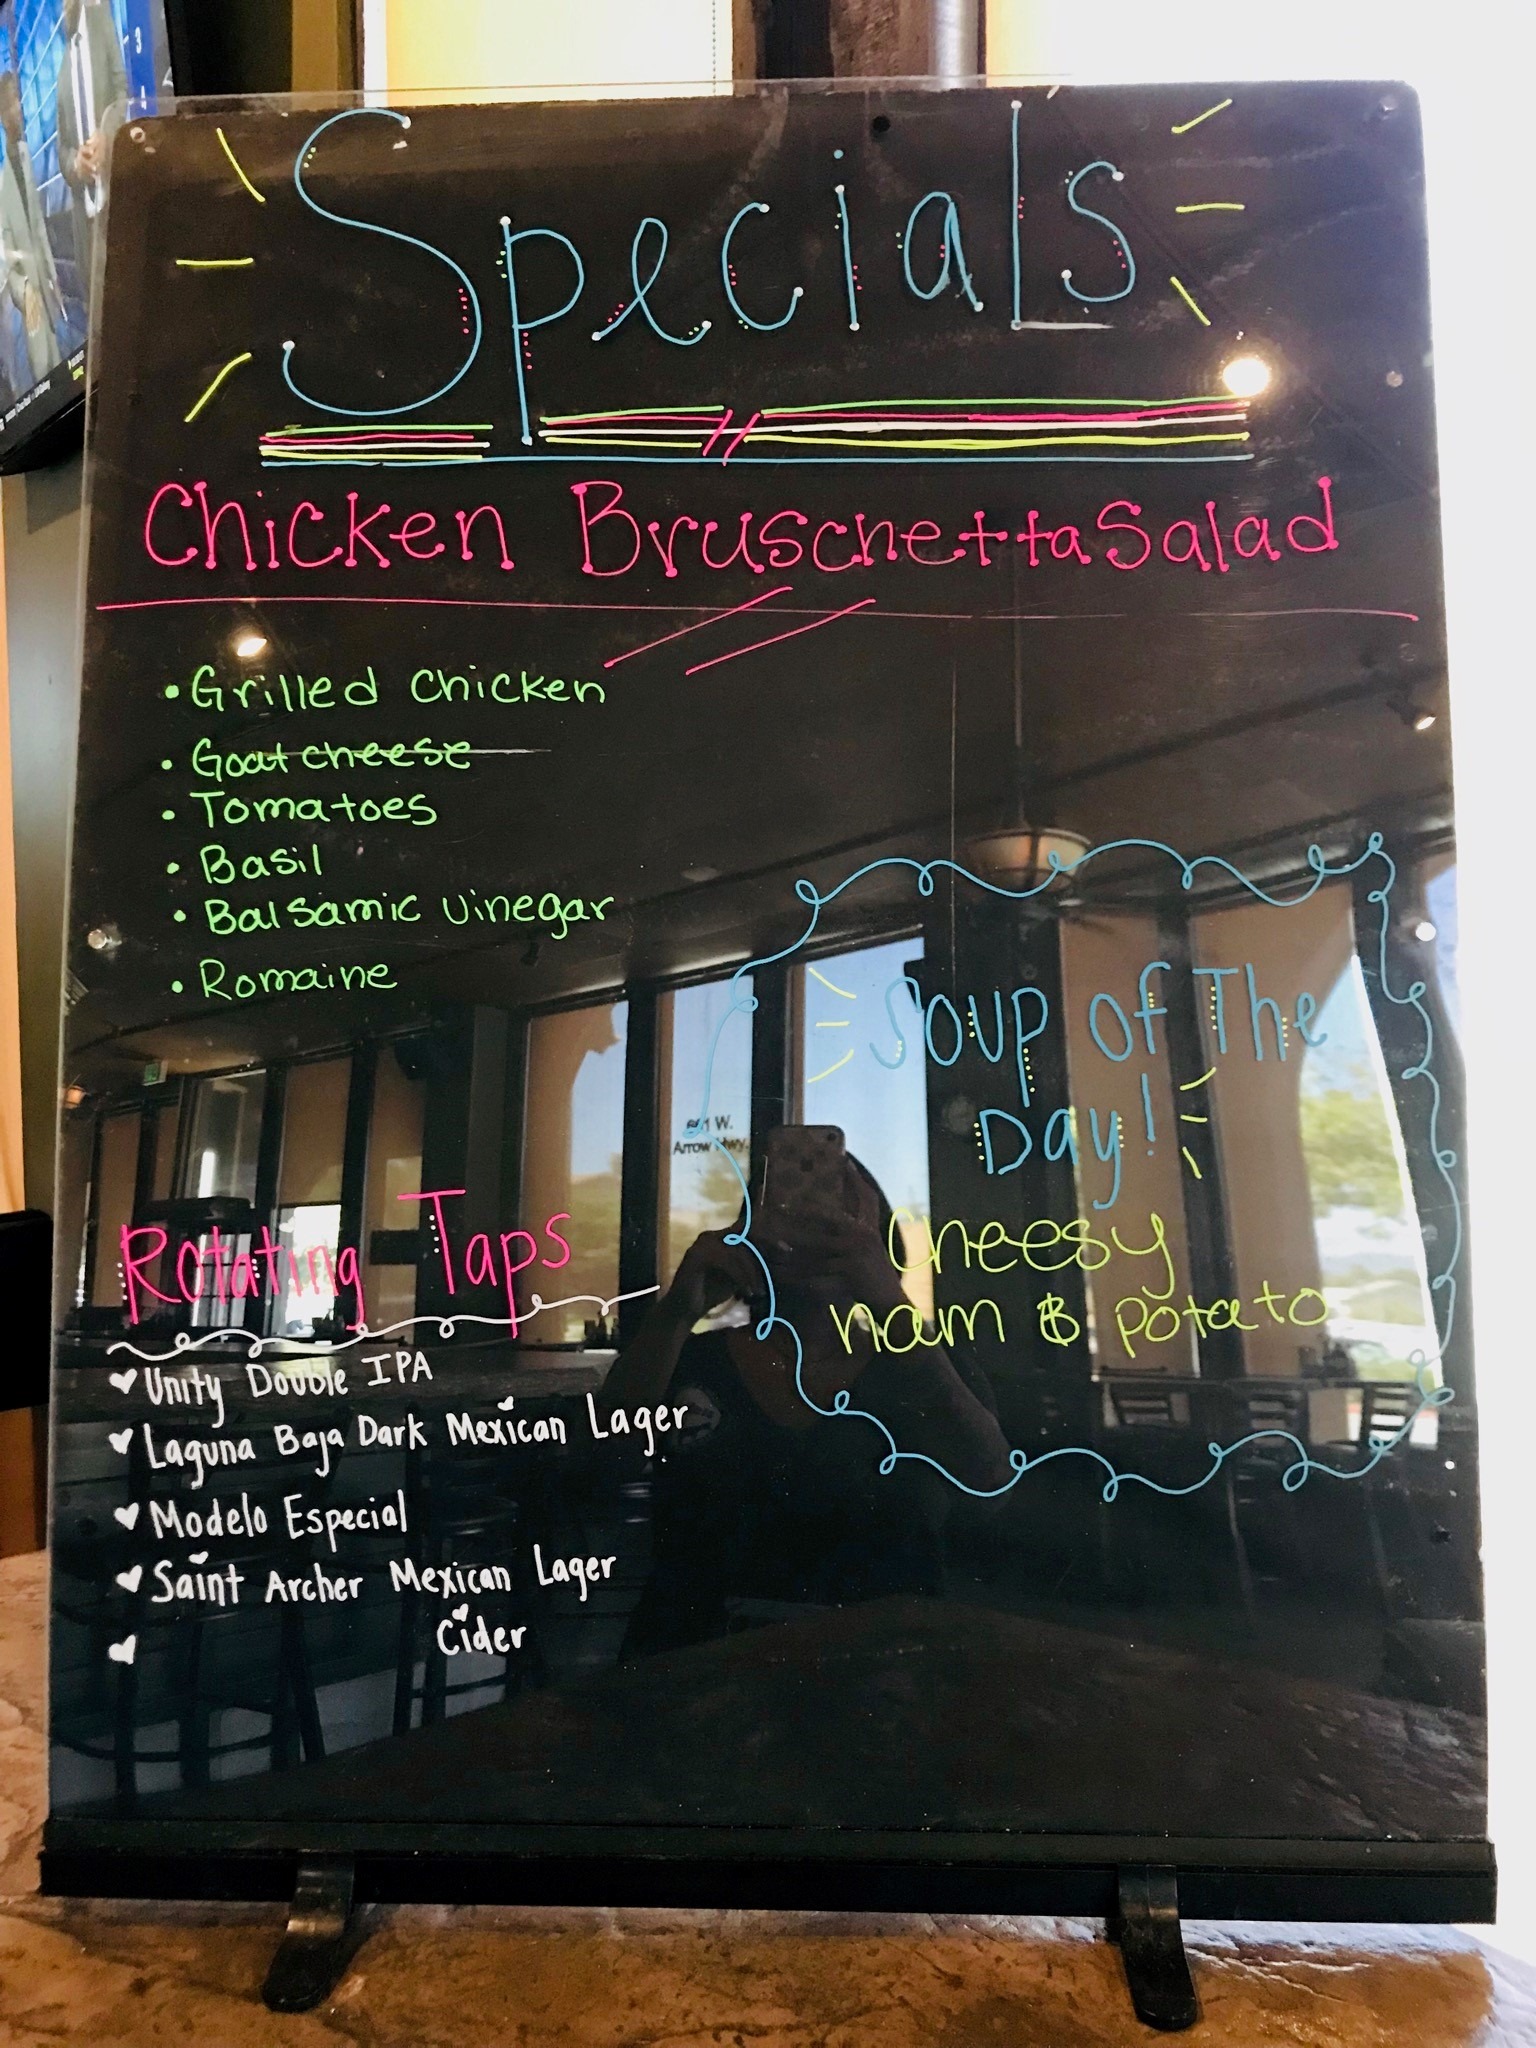 Specials
Chicken Bruschetta Salad
• Grilled Chicken
• Goat cheese
• Tomatoes
• Basil
• Balsamic Vinegar
• Romaine
Soup of The
Day!
Cheesy
ham & potato
W.
Arrow Hwy.
Rotating Taps
♥ Unity Double IPA
♥ Laguna Baja Dark Mexican Lager
♥ Modelo Especial
♥ Saint Archer Mexican Lager
♥ Cider